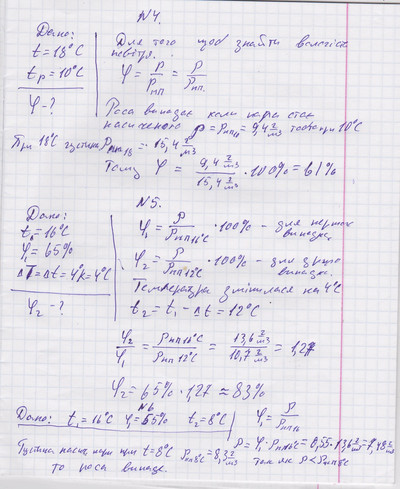 N4.
Дано:
t = 18°C
tр = 10°C
φ - ?
Для того щоб знайти вологість
повітря.
φ = p/pнп = ρ/ρнп.
Роса випадає коли пара стає
насиченою ρ = ρнп10 = 9,4 г/м3 тобто при 10°C
При 18°C густина ρнп18 = 15,4 г/м3
Тому φ = 9,4 г/м3 / 15,4 г/м3 · 100% = 61%
N5.
Дано:
t1 = 16°C
φ1 = 65%
ΔT = Δt = 4°K = 4°C
φ2 - ?
φ1 = ρ/ρнп16°C · 100% - для першого випадку
φ2 = ρ/ρнп12°C · 100% - для другого випадку.
Температура змінилася на 4°C
t2 = t1 - Δt = 12°C
φ2/φ1 = ρнп16°C/ρнп12°C = 13,6 г/м3 / 10,7 г/м3 = 1,27
φ2 = 65% · 1,27 ≈ 83%
N6
Дано: t1 = 16°C φ1 = 55% t2 = 8°C φ1 = ρ/ρнп16
ρ = φ1 · ρнп16°C = 0,55 · 13,6 г/м3 = 7,48 г/м3
Густина насич. пари при t = 8°C ρнп8°C = 8,3 г/м3 так як ρ < ρнп8°C
то роса випаде.